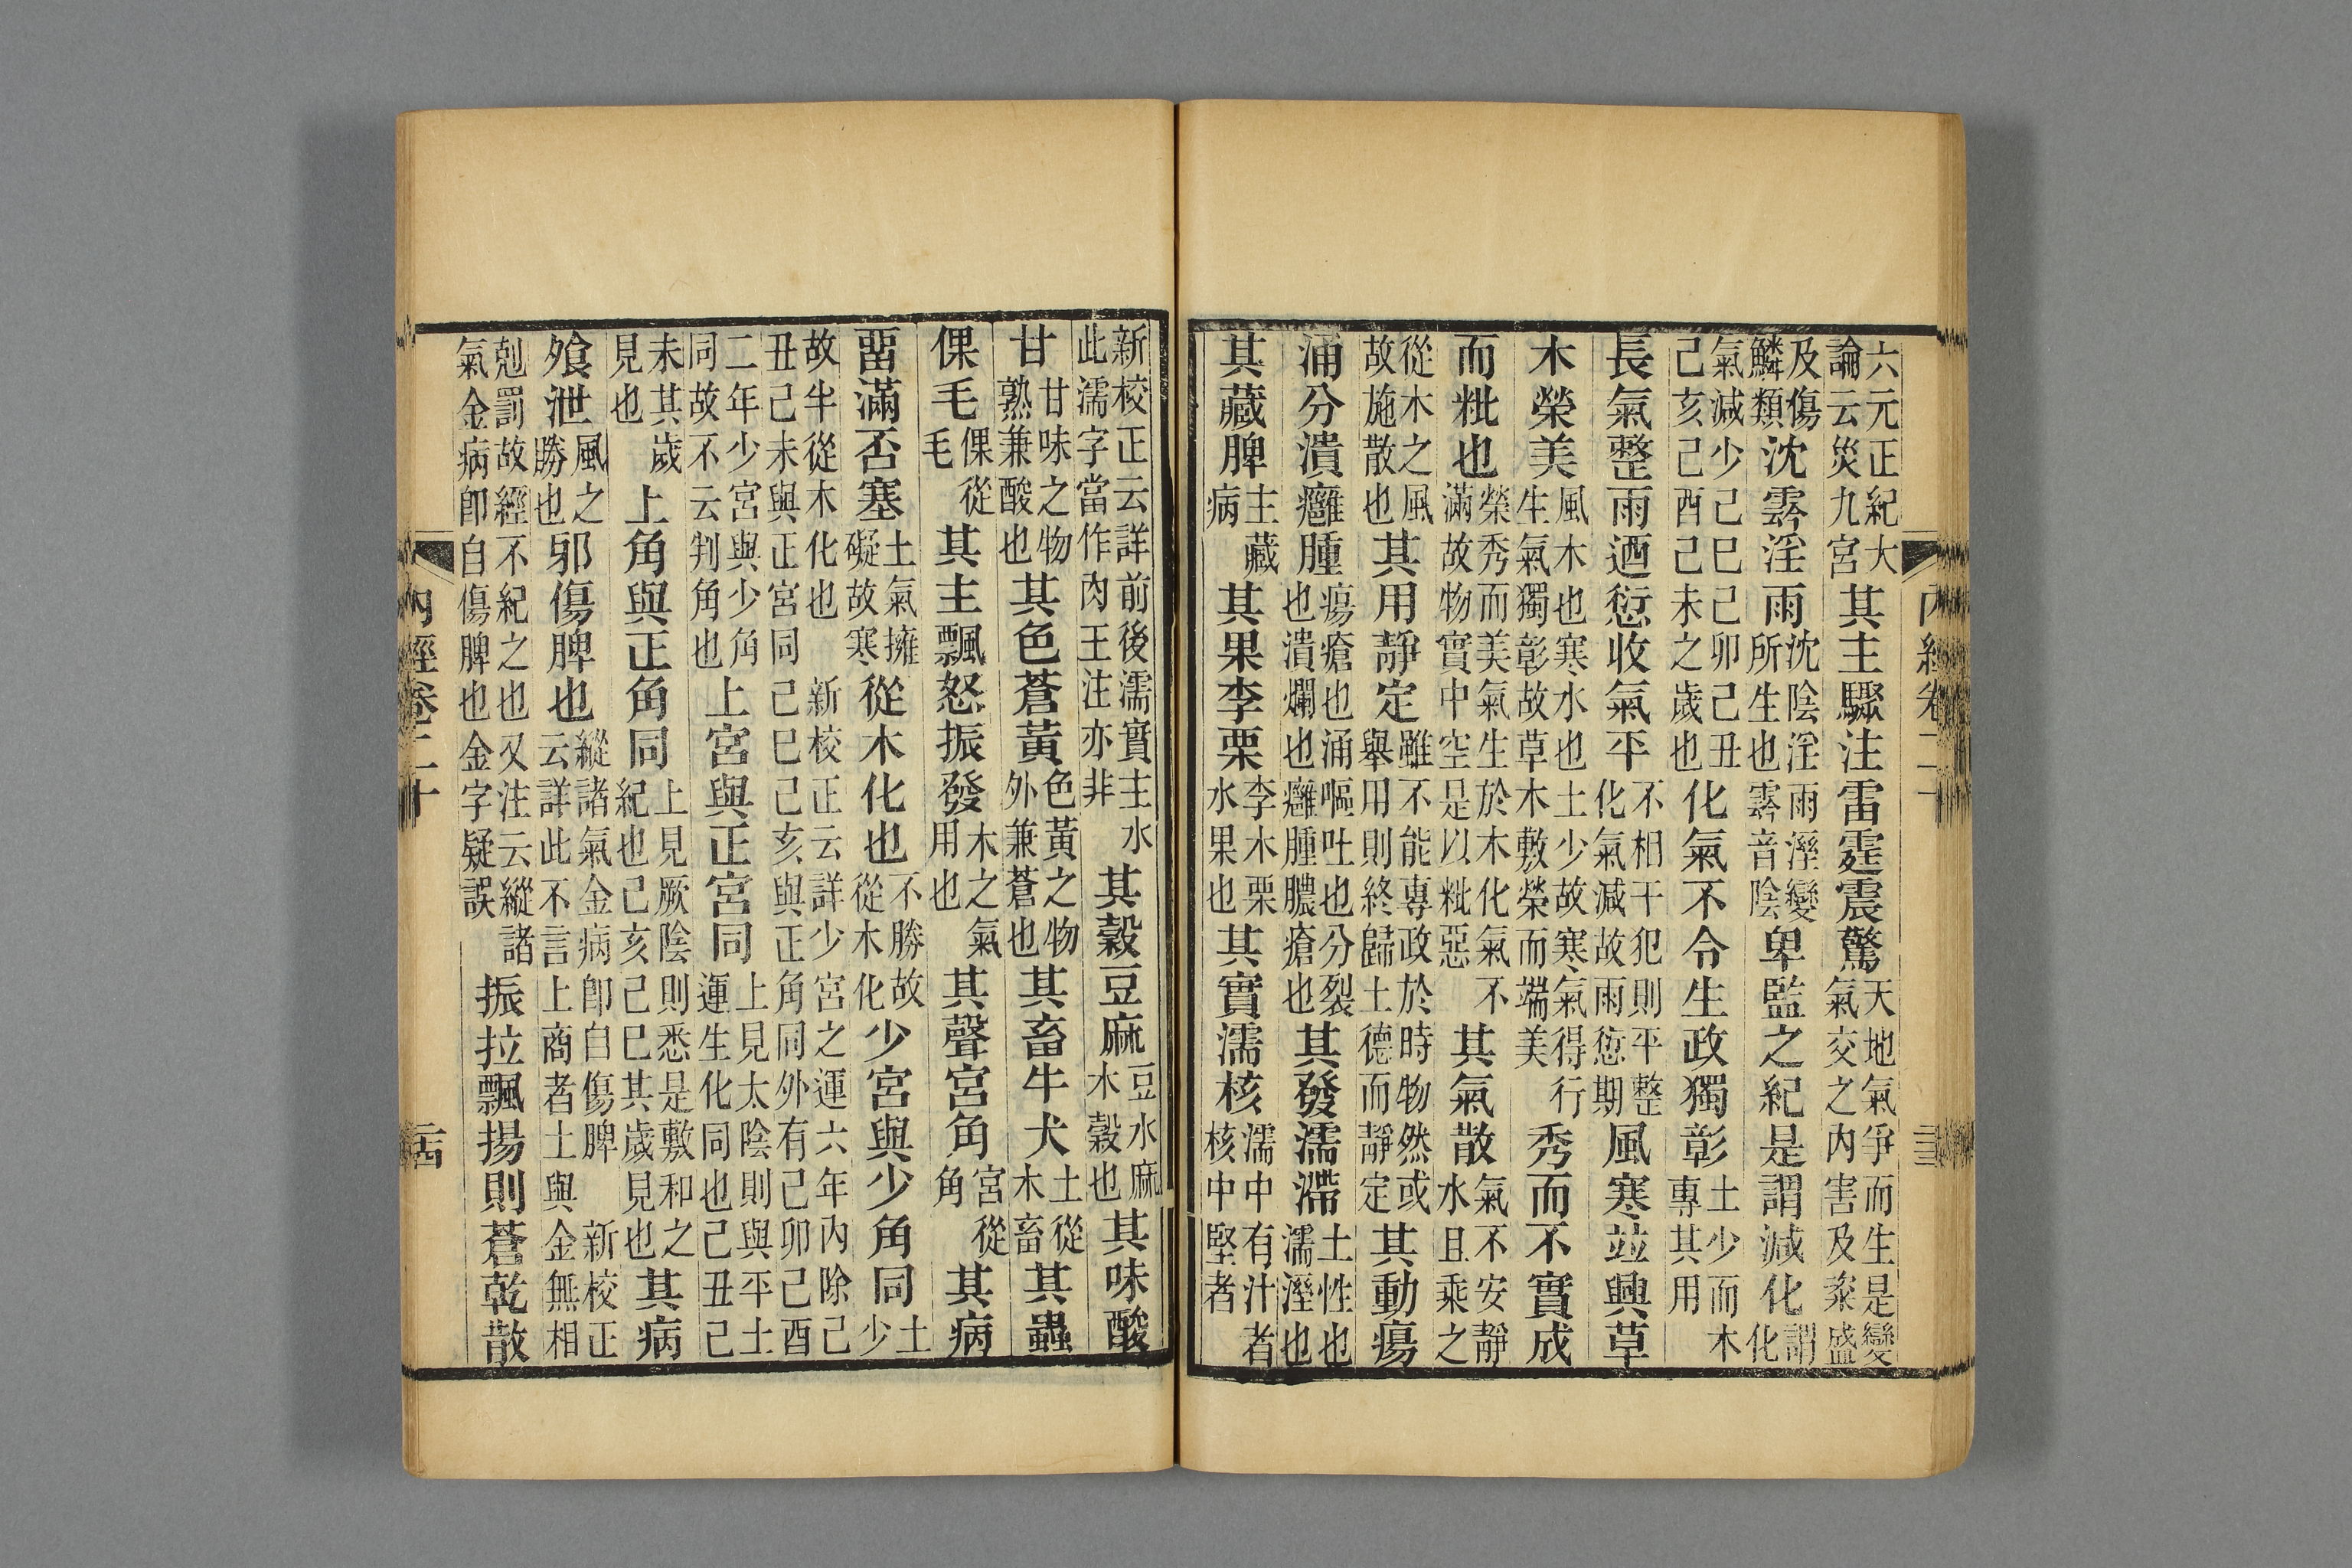 六元正紀大論云災九宮其主驟注雷霆震驚天地氣爭而生是變氣交之內害及粢盛
及傷鱗類沈霒淫雨沈陰淫雨溼變所生也霒音陰卑監之紀是謂減化謂化
氣減少己巳己卯己丑己亥己酉己未之歲也化氣不令生政獨彰土少而木專其用
長氣整雨迺愆收氣平不相干犯則平整化氣減故雨愆期風寒竝興草
木榮美風木也寒水也土少故寒氣得行生氣獨彰故草木敷榮而端美秀而不實成
而粃也榮秀而美氣生於木化氣不滿故物實中空是以粃惡其氣散氣不安靜水且乘之
從木之風故施散也其用靜定雖不能專政於時物然或舉用則終歸土德而靜定其動瘍
涌分潰癰腫瘍瘡也涌嘔吐也分裂也潰爛也癰腫膿瘡也其發濡滯土性也濡溼也
其藏脾主藏病其果李栗李木栗水果也其實濡核濡中有汁者核中堅者
新校正云詳前後濡實主水此濡字當作肉王注亦非其穀豆麻豆水麻木穀也其味酸
甘甘味之物熟兼酸也其色蒼黃色黃之物外兼蒼也其畜牛犬土從木畜其蟲
倮毛倮從毛其主飄怒振發木之氣用也其聲宮角宮從角其病
畱滿否塞土氣擁礙故寒從木化也不勝故從木化少宮與少角同土少
故半從木化也 新校正云詳少宮之運六年內除己丑己未與正宮同 己巳己亥與正角同外有己卯己酉
二年少宮與少角同故不云判角也上宮與正宮同上見太陰則與平土運生化同也己丑己
未其歲見也上角與正角同上見厥陰則悉是敷和之紀也己亥己巳其歲見也其病
飱泄風之勝也邪傷脾也縱諸氣金病卽自傷脾 新校正云詳此不言上商者土與金無相
剋罰故經不紀之也又注云縱諸氣金病卽自傷脾也金字疑誤振拉飄揚則蒼乾散
內經卷二十